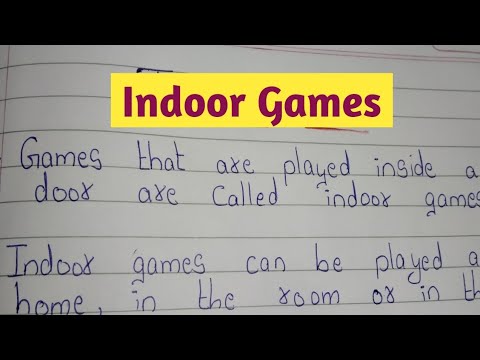 Indoor Games
Games that are played inside a
door are called indoor games
Indoor games can be played a
home, in the room or in th